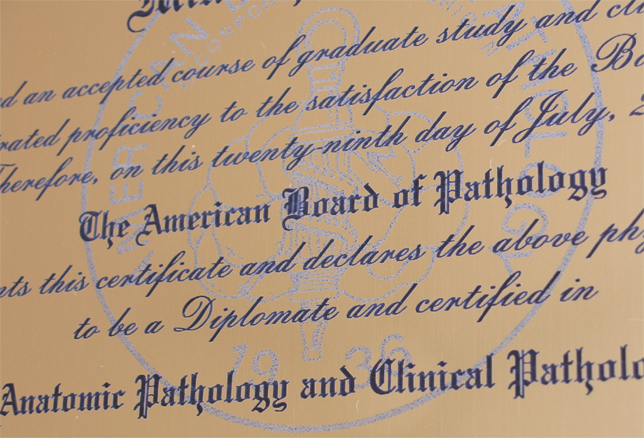 an accepted course of graduate study and
proficiency to the satisfaction of the
Therefore, on this twenty-ninth day of July,
The American Board of Pathology
this certificate and declares the above
to be a Diplomate and certified in
19 36
Anatomic Pathology and Clinical